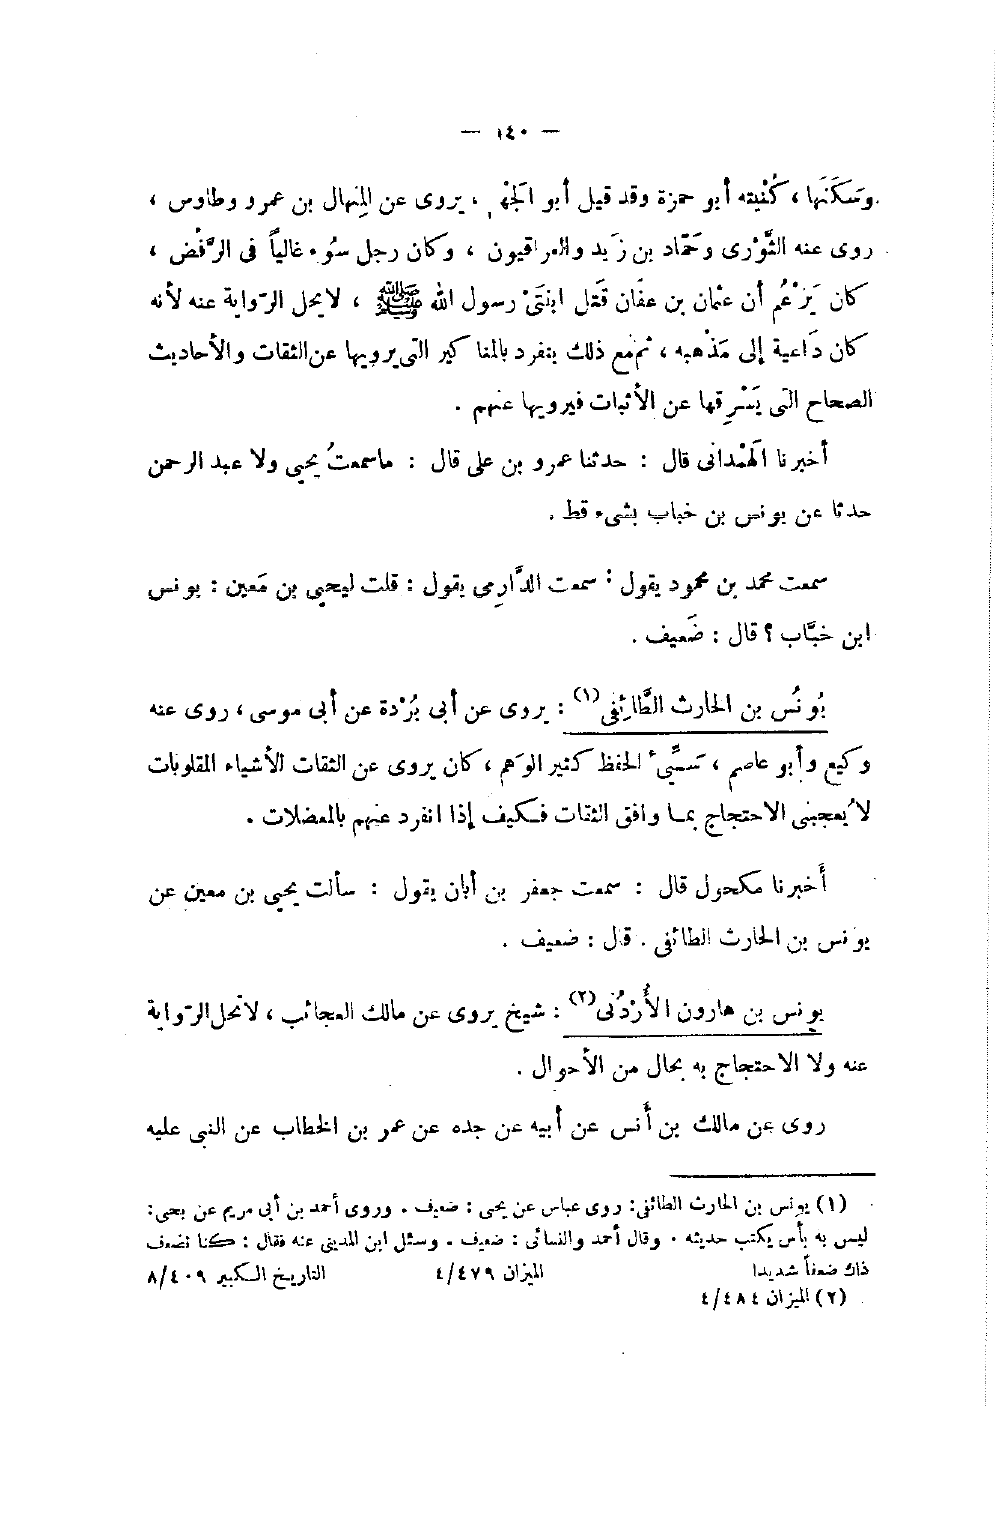 — ١٤٠ —
وسَكَنَها ، كُنْيته أبو حمزة وقد قيل أبو الجهْم ، يروى عن المِنهال بن عمرو وطاوس ،
روى عنه الثَّوْرى وحَمَّاد بن زَيد والعراقيون ، وكان رجل سُوء غالياً فى الرَّفْض ،
كان يَزْعُم أن عثمان بن عفَان قَتل ابنتَىْ رسول الله ﷺ ، لايحل الرّواية عنه لأنه
كان دَاعية إلى مَذْهبه ، ثم مع ذلك ينفرد بالمناكير التى يرويها عن الثقات والأحاديث
الصحاح التى يَسْرِقها عن الأثبات فيرويها عنهم .
أخبرنا الهَمْدانى قال : حدثنا عمرو بن على قال : ماسمعتُ يحيى ولا عبد الرحمن
حدثا عن يونس بن خباب بشىء قط .
سمعت محمد بن محمود يقول : سمعت الدَّارِمى يقول : قلت ليحيى بن مَعين : يونس
ابن خبَّاب ؟ قال : ضَعيف .
يُونُس بن الحارث الطَّائِفى (١) : يروى عن أبى بُرْدة عن أبى موسى ، روى عنه
وكيع وأبو عاصم ، سَيِّئ الحفظ كثير الوَهم ، كان يروى عن الثقات الأشياء المقلوبات
لا يُعجبنى الاحتجاج بما وافق الثقات فكيف إذا انفرد عنهم بالمعضلات .
أَخبرنا مكحول قال : سمعت جعفر بن أبان يقول : سألت يحيى بن معين عن
يونس بن الحارث الطائفى . قال : ضعيف .
يونس بن هارون الأُرْدُنى (٢) : شيخ يروى عن مالك العجائب ، لاتحل الرّواية
عنه ولا الاحتجاج به بحال من الأحوال .
روى عن مالك بن أَنس عن أبيه عن جده عن عمر بن الخطاب عن النبى عليه
(١) يونس بن الحارث الطائفى : روى عباس عن يحيى : ضعيف . وروى أحمد بن أبى مريم عن يحيى :
ليس به بأس يكتب حديثه . وقال أحمد والنسائى : ضعيف . وسئل ابن المدينى عنه فقال : كنا نضعف
ذاك ضعفاً شديدا الميزان ٤/٤٧٩ التاريخ الكبير ٨/٤٠٩
(٢) الميزان ٤/٤٨٤